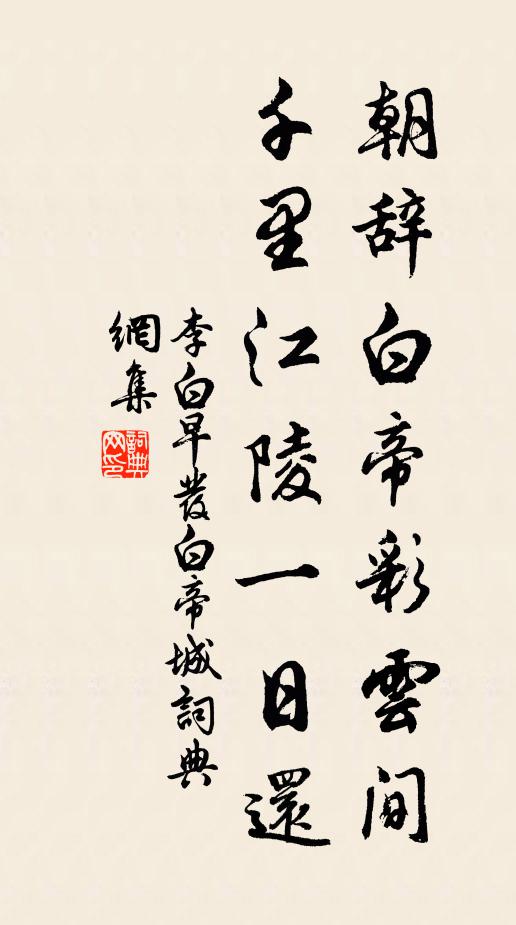 朝辞白帝彩雲間
千里江陵一日還
李白早發白帝城詞典
網集
詞典
网印